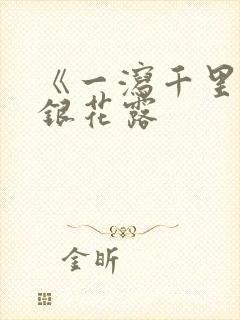 《一瀉千里
銀花露
金昕